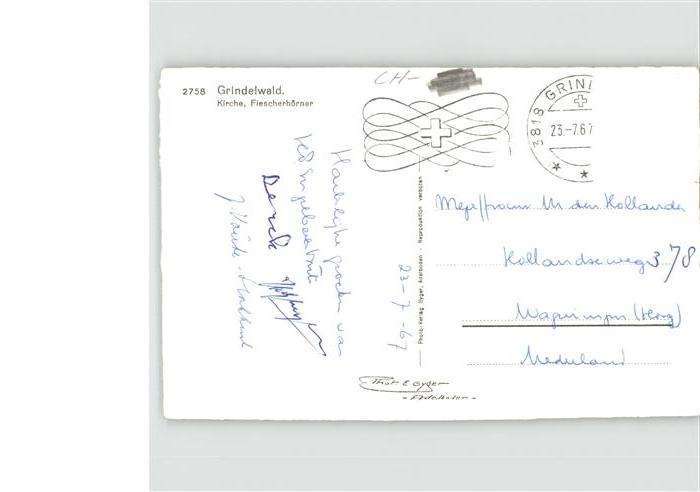 2758 Grindelwald.
Kirche, Fiescherhörner
CH-
3818 GRIN
23.-7.67
Hartelijke groeten van
Derek
23-7-67
Photo-Verlag Gyger, Adelboden - Reproduktion verboten
M. den Hollander
Hollandseweg 378
Wageningen (Hoog)
Nederland
Thor E Gyger
- Adelboden -